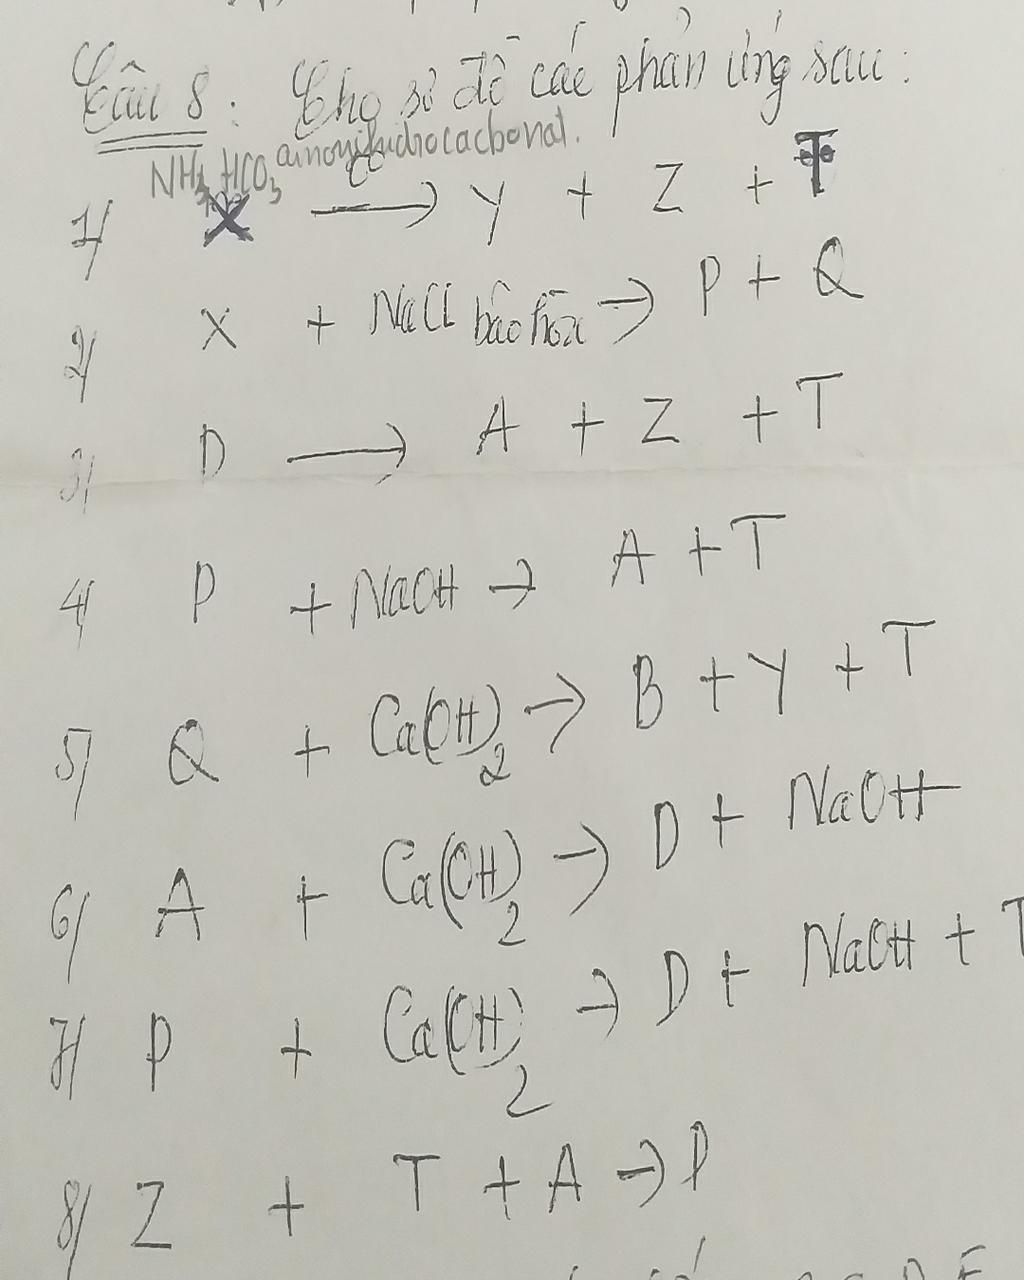 Câu 8: Cho sơ đồ các phản ứng sau:
NH4HCO3 amonihidrocacbonat.
1/ X t°→ Y + Z + T
2/ X + NaCl bão hòa → P + Q
3/ D → A + Z + T
4/ P + NaOH → A + T
5/ Q + Ca(OH)2 → B + Y + T
6/ A + Ca(OH)2 → D + NaOH
7/ P + Ca(OH)2 → D + NaOH + T
8/ Z + T + A → P